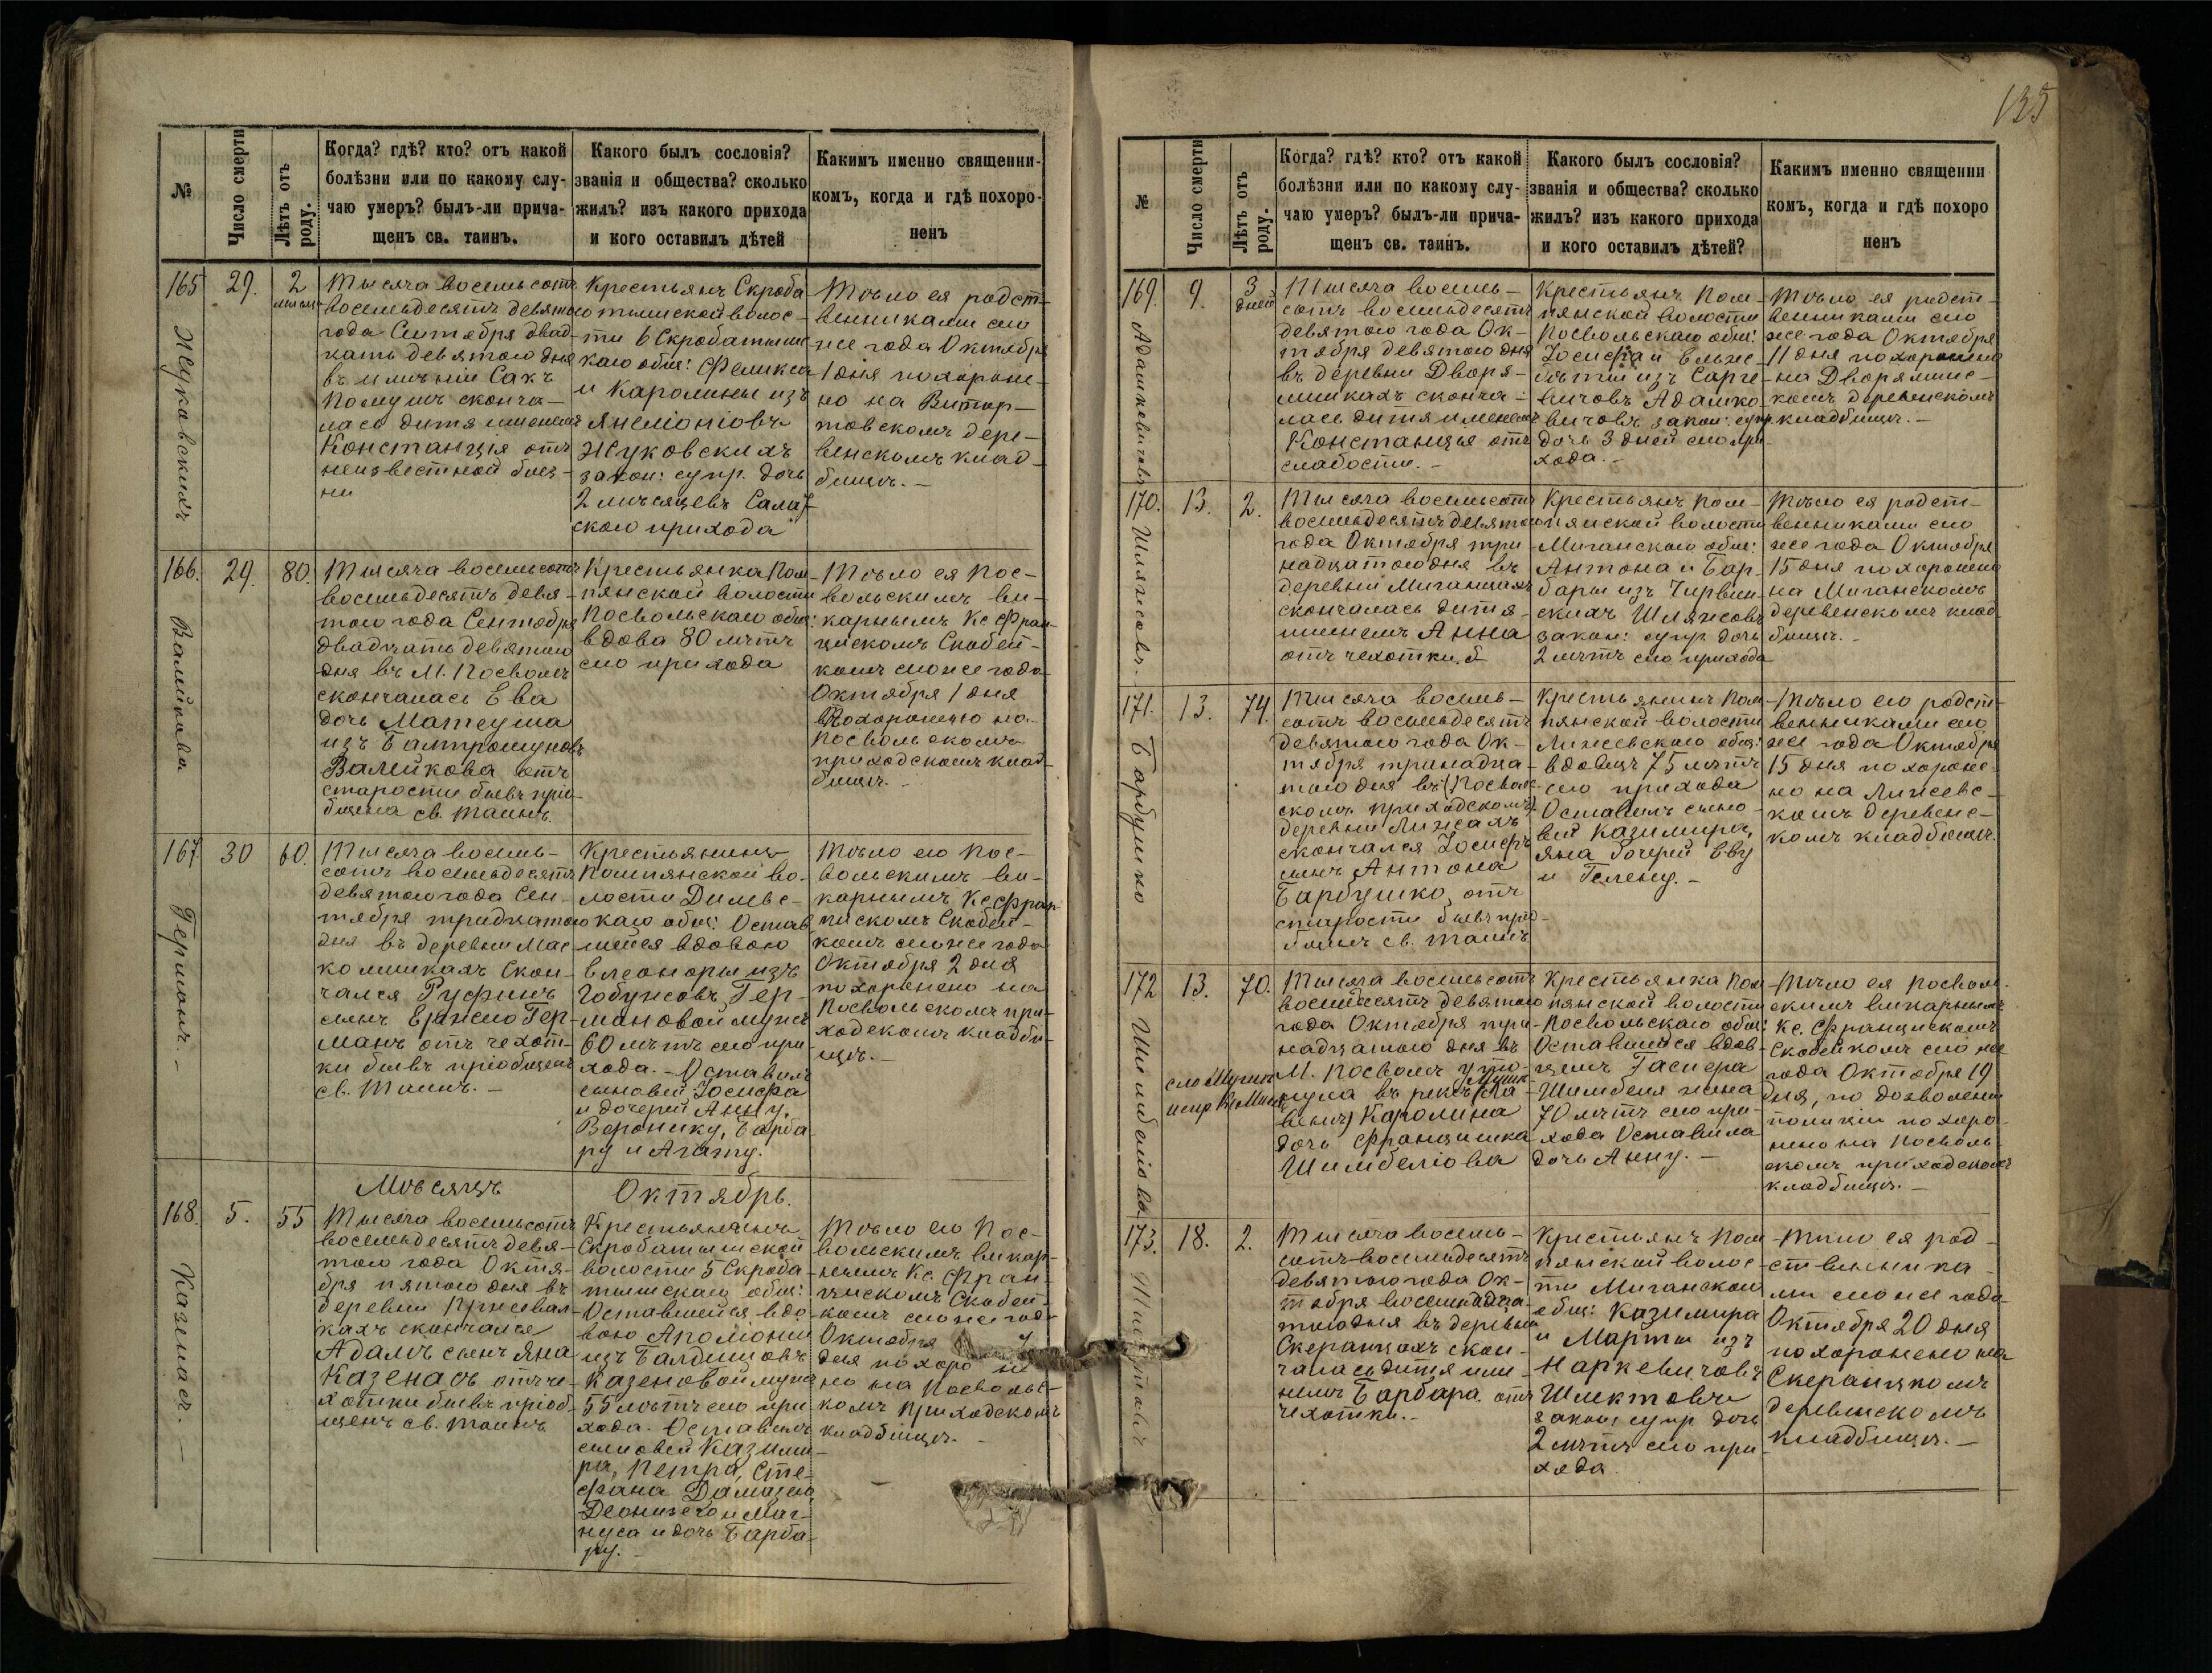 135
№
Число смерти
Лѣтъ отъ роду.
Когда? гдѣ? кто? отъ какой
болѣзни или по какому слу-
чаю умеръ? былъ-ли прича-
щенъ св. таинъ.
Какого былъ сословія?
званія и общества? сколько
жилъ? изъ какого прихода
и кого оставилъ дѣтей
Какимъ именно священни-
комъ, когда и гдѣ похоро-
ненъ
165
Жуковскихъ
29.
2
Тысяча восемьсотъ
восемьдесятъ девятого
года Сентября двад-
цать девятого дня
въ имѣніи Сакъ
скончa-
лась дитя именемъ
Констанція отъ
неизвестной болез-
ни
Крестьянъ Скроба-
тишской волос-
ти 6 Скробатишс-
каго общ: Феликса
и Каролины изъ
Жуковскихъ
закон: супр. дочь
2 мѣсяцевъ
скаго прихода
Тѣло ея родст-
венниками сего
же года Октября
1 дня похороне-
но на
товскомъ дере-
венскомъ клад-
бищѣ. -
166.
29.
80.
Тысяча восемьсотъ
восемьдесятъ девя-
того года Сентября
двадцать девятого
дня въ М. Посволѣ
скончалась Ева
дочь Матеуша
изъ
Валейкова отъ
старости бывъ прiо-
бщена св. таинъ.
Крестьянка Пом-
пянской волости
Посвольскаго общ:
вдова 80 лѣтъ
сего прихода
Тѣло ея Пос-
вольскимъ ви-
карнымъ Кс Фран-
цискомъ Скобей-
комъ сего же года
Октября 1 дня
похоронено на
Посвольскомъ
приходскомъ клад-
бищѣ. -
167
30
60.
Тысяча восемь-
сотъ восемьдесятъ
девятого года Сен-
тября тридцатого
дня въ деревни Мас-
колишкахъ скон-
чался Руфинъ
сынъ Гер-
манъ отъ чехот-
ки бывъ пріобщенъ
св. Таинъ. -
Крестьянинъ
Помпянской во-
лости
каго общ: Остав-
шейся вдовою
Елеоноры изъ
Гобужсовъ Гер-
мановой мужъ
60 лѣтъ сего при-
хода. - Оставилъ
сыновей Іосифа
и дочерей Анну,
Веронику, Барба-
ру и Агату.
Тѣло его Пос-
вольскимъ ви-
карнымъ Кс Фран-
цискомъ Скобей-
комъ сего же года
Октября 2 дня
похоронено на
Посвольскомъ при-
ходскомъ кладби-
щѣ. -
Мѣсяцъ Октябрь.
168.
Казенасъ. -
5.
55
Тысяча восемьсотъ
восемьдесятъ девя-
того года Октя-
бря пятого дня въ
деревни
кахъ скончался
Адамъ сынъ Яна
Казенасъ отъ че-
хотки бывъ пріоб-
щенъ св. таинъ
Крестьянинъ
Скробатишской
волости 5 Скроба-
тишскаго общ:
Оставшейся вдо-
вою Аполоніи
изъ
Казеновой мужъ
55 лѣтъ сего при-
хода. Оставилъ
сыновей Казими-
ра, Петра, Сте-
фана
и Маг-
нуса и дочь Барба-
ру. -
Тѣло его Пос-
вольскимъ викар-
нымъ Кс. Фран-
цискомъ Скобей-
комъ сего же года
Октября 7
дня похороне-
но на Посвольс-
комъ приходскомъ
кладбищѣ. -
№
Число смерти
Лѣтъ отъ роду.
Когда? гдѣ? кто? отъ какой
болѣзни или по какому слу-
чаю умеръ? былъ-ли прича-
щенъ св. таинъ.
Какого былъ сословія?
званія и общества? сколько
жилъ? изъ какого прихода
и кого оставилъ дѣтей?
Какимъ именно священни
комъ, когда и гдѣ похоро
ненъ
169.
Адашкевичовъ
9.
3
дней
Тысяча восемь-
сотъ восемьдесятъ
девятого года Ок-
тября девятого дня
въ деревни Дворя-
лишкахъ сконча-
лась дитя именемъ
Констанція отъ
слабости. -
Крестьянъ Пом-
пянской волости
Посвольскаго общ:
Іосифа и Ельже-
беты изъ Сарге-
вичовъ Адашке-
вичовъ закон: супр.
дочь 3 дней сего при-
хода. -
Тѣло ея родст-
венниками сего
же года Октября
11 дня похоронено
на Дворялишс-
комъ деревенскомъ
кладбищѣ. -
170.
13.
2.
Тысяча восемьсотъ
восемьдесятъ девятого
года Октября три-
надцатого дня въ
деревни Миганцахъ
скончалась дитя
именемъ Анна
отъ чехотки.
Крестьянъ Пом-
пянской волости
Миганскаго общ:
Антона и Бар-
бары изъ Чирвин-
скихъ Шляжсовъ
закон: супр дочь
2 лѣтъ сего прихода
Тѣло ея родст-
венниками сего
же года Октября
15 дня похоронено
на Миганскомъ
деревенскомъ клад-
бищѣ. -
171.
Барбушко
13.
74.
Тысяча восемь-
сотъ восемьдесятъ
девятого года Ок-
тября тринадца-
того дня въ (Посволь-
скомъ приходскомъ)
деревни Лижсахъ
скончался Іосифъ
сынъ Антона
Барбушко, отъ
старости бывъ прiо-
бщенъ св. таинъ
Крестьянинъ Пом-
пянской волости
Лижсевскаго общ:
вдовецъ 75 лѣтъ
сего прихода
Оставилъ сыно-
вей Казимира,
Яна дочерей Еву
и Гелену. -
Тѣло его родст-
венниками сего
же года Октября
15 дня похороне-
но на Лижсевс-
комъ деревенс-
комъ кладбищѣ.
172
Шимбеліова
13.
70.
Тысяча восемьсотъ
восемьдесятъ девятого
года Октября три-
надцатого дня въ
М. Посволѣ уто-
нула въ рекѣ
Каролина
дочь Францишка
Шимбеліова
Крестьянка Пом-
пянской волости
Посвольскаго общ:
Оставшійся вдов-
цемъ Гаспера
Шимбеля жена
70 лѣтъ сего при-
хода Оставила
дочь Анну. -
Тѣло ея Посволь-
скимъ викарнымъ
Кс. Францискомъ
Скобейкомъ сего же
года Октября 19
дня, по дозволенію
полиціи похоро-
нено на Посволь-
скомъ приходскомъ
кладбищѣ. -
173.
18.
2.
Тысяча восемь-
сотъ восемьдесятъ
девятого года Ок-
тября восемнадца-
того дня въ деревни
Скеранцахъ скон-
чалась дитя име-
немъ Барбара отъ
чехотки. -
Крестьянъ Пом-
пянской волос-
ти Миганскаго
общ: Казимира
и Марты изъ
Наркевичовъ
Шиктовъ
закон: супр дочь
2 лѣтъ сего при-
хода.
Тѣло ея род-
ственника-
ми сего же года
Октября 20 дня
похоронено на
Скеранцкомъ
деревнскомъ
кладбищѣ. -